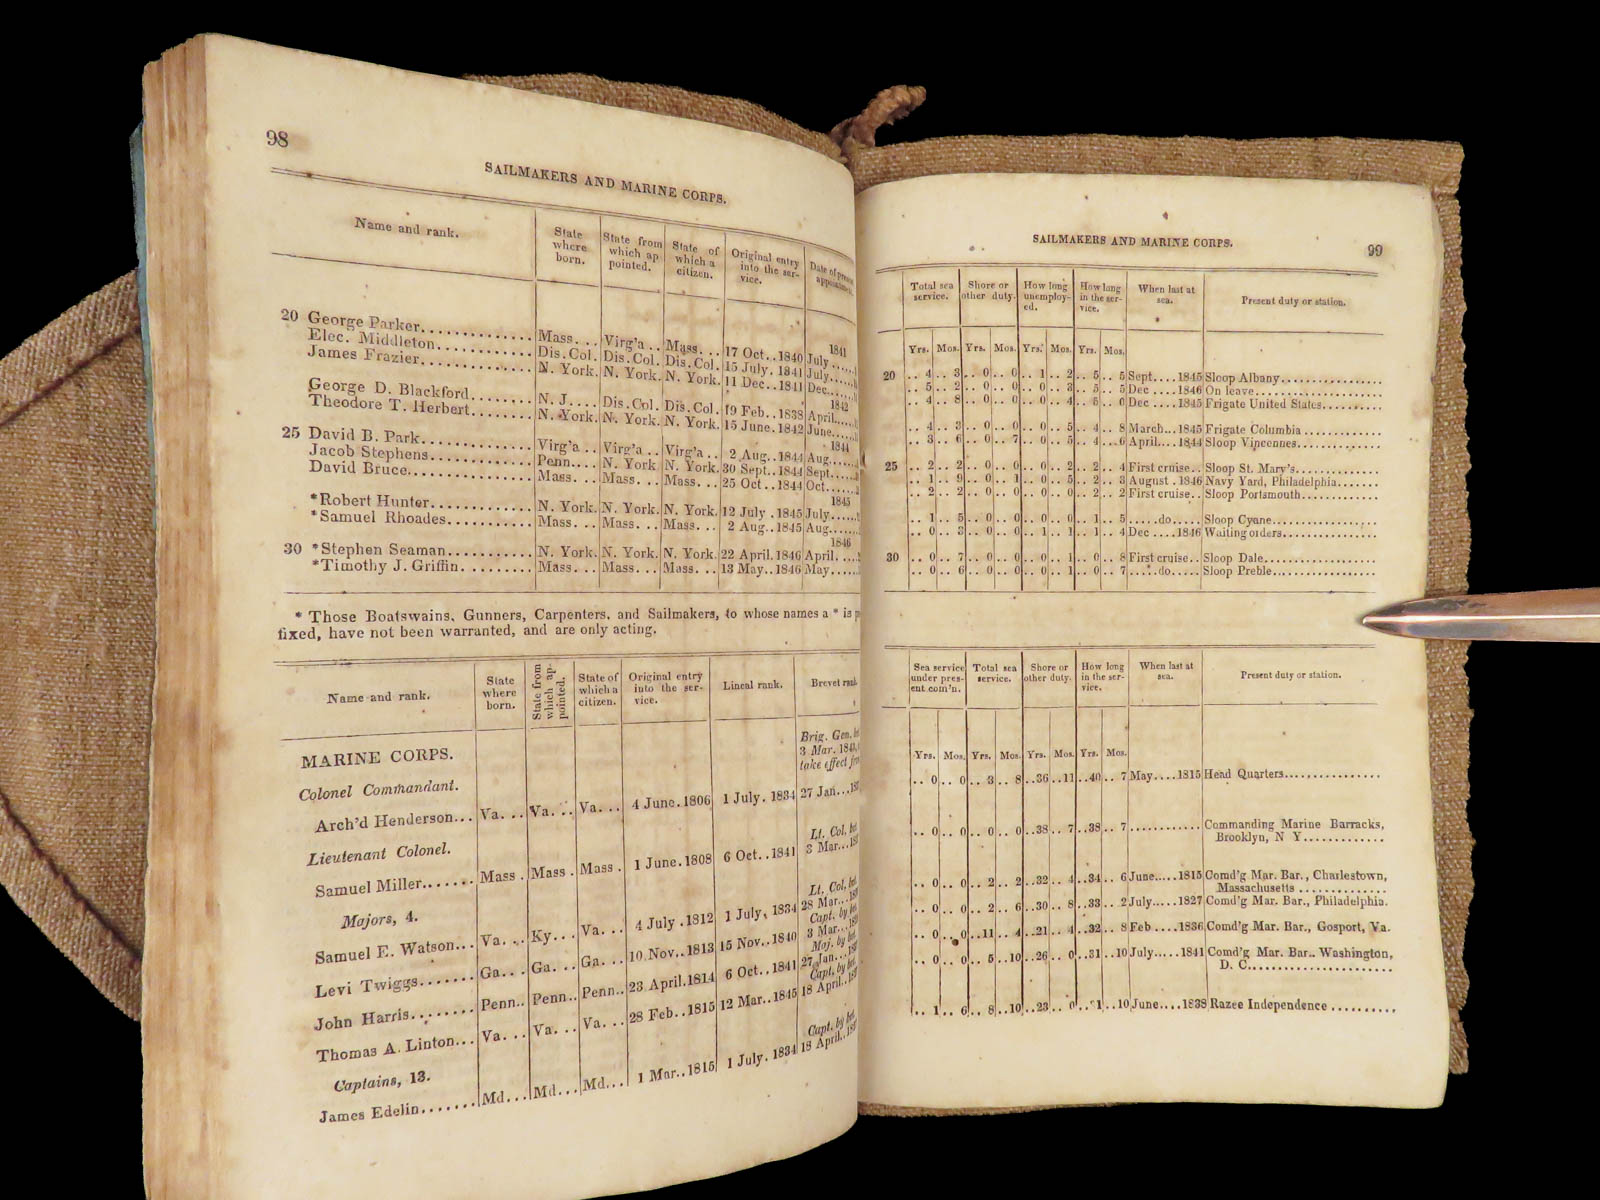 98
SAILMAKERS AND MARINE CORPS.
Name and rank. State where born. State from which ap pointed. State of which a citizen. Original entry into the ser- vice. Date of present appointment.
1841
20 George Parker Mass. Virg'a Mass. 17 Oct. 1840 July
Elec. Middleton Dis. Col. Dis. Col. Dis. Col. 15 July. 1841 July
James Frazier N. York. N. York. N. York. 11 Dec. 1841 Dec.
1842
George D. Blackford N. J. Dis. Col. Dis. Col. 19 Feb. 1838 April
Theodore T. Herbert N. York. N. York. N. York. 15 June. 1842 June
1844
25 David B. Park Virg'a Virg'a Virg'a 2 Aug. 1844 Aug.
Jacob Stephens Penn. N. York N. York. 30 Sept. 1844 Sept.
David Bruce Mass. Mass. Mass. 25 Oct. 1844 Oct.
1845
*Robert Hunter N. York. N. York. N. York. 12 July. 1845 July
*Samuel Rhoades Mass. Mass. Mass. 2 Aug. 1845 Aug.
1846
30 *Stephen Seaman N. York. N. York. N. York. 22 April. 1846 April
*Timothy J. Griffin Mass. Mass. Mass. 13 May. 1846 May
* Those Boatswains, Gunners, Carpenters, and Sailmakers, to whose names a * is p
fixed, have not been warranted, and are only acting.
Name and rank. State where born. State from which ap- pointed. State of which a citizen. Original entry into the ser- vice. Lineal rank. Brevet rank.
MARINE CORPS.
Brig. Gen.
3 Mar. 1843,
take effect
Colonel Commandant.
Arch'd Henderson Va. Va. Va. 4 June. 1806 1 July. 1834 27 Jan.
Lieutenant Colonel.
Lt. Col.
Samuel Miller Mass. Mass. Mass. 1 June. 1808 6 Oct. 1841 3 Mar.
Majors, 4.
Lt. Col.
Samuel E. Watson Va. Ky. Va. 4 July. 1812 1 July, 1834 28 Mar.
Capt. by
Levi Twiggs Ga. Ga. Ga. 10 Nov. 1813 15 Nov. 1840 3 Mar.
Maj. by
John Harris Penn. Penn. Penn. 23 April. 1814 6 Oct. 1841 27 Jan.
Capt. by
Thomas A. Linton Va. Va. Va. 28 Feb. 1815 12 Mar. 1845 18 April.
Captains, 13.
Capt. by
James Edelin Md. Md. Md. 1 Mar. 1815 1 July. 1834 18 April.
SAILMAKERS AND MARINE CORPS.
99
Total sea service. Shore or other duty. How long unemploy- ed. How long in the ser- vice. When last at sea. Present duty or station.
Yrs. Mos. Yrs. Mos. Yrs. Mos. Yrs. Mos.
20 4 3 0 0 1 2 5 5 Sept. 1845 Sloop Albany
5 2 0 0 0 3 5 5 Dec 1846 On leave
4 8 0 0 0 4 5 0 Dec 1845 Frigate United States
4 3 0 0 0 5 4 8 March. 1845 Frigate Columbia
3 6 0 7 0 5 4 6 April. 1844 Sloop Vincennes
25 2 2 0 0 0 2 2 4 First cruise Sloop St. Mary's
1 9 0 1 0 5 2 3 August. 1846 Navy Yard, Philadelphia
2 2 0 0 0 0 2 2 First cruise Sloop Portsmouth
1 5 0 0 0 0 1 5 do Sloop Cyane
0 3 0 0 1 1 1 4 Dec 1846 Waiting orders
30 0 7 0 0 0 1 0 8 First cruise Sloop Dale
0 6 0 0 0 1 0 7 do Sloop Preble
Sea service under pres- ent com'n. Total sea service. Shore or other duty. How long in the ser- vice. When last at sea. Present duty or station.
Yrs. Mos. Yrs. Mos. Yrs. Mos. Yrs. Mos.
0 0 3 8 36 11 40 7 May 1815 Head Quarters
0 0 0 0 38 7 38 7 Commanding Marine Barracks,
Brooklyn, N Y
0 0 2 2 32 4 34 6 June 1815 Comd'g Mar. Bar., Charlestown,
Massachusetts
0 0 2 6 30 8 33 2 July 1827 Comd'g Mar. Bar., Philadelphia.
0 0 11 4 21 4 32 8 Feb 1836 Comd'g Mar. Bar., Gosport, Va.
0 0 5 10 26 0 31 10 July 1841 Comd'g Mar. Bar.. Washington,
D. C.
1 6 8 10 23 0 1 10 June 1838 Razee Independence